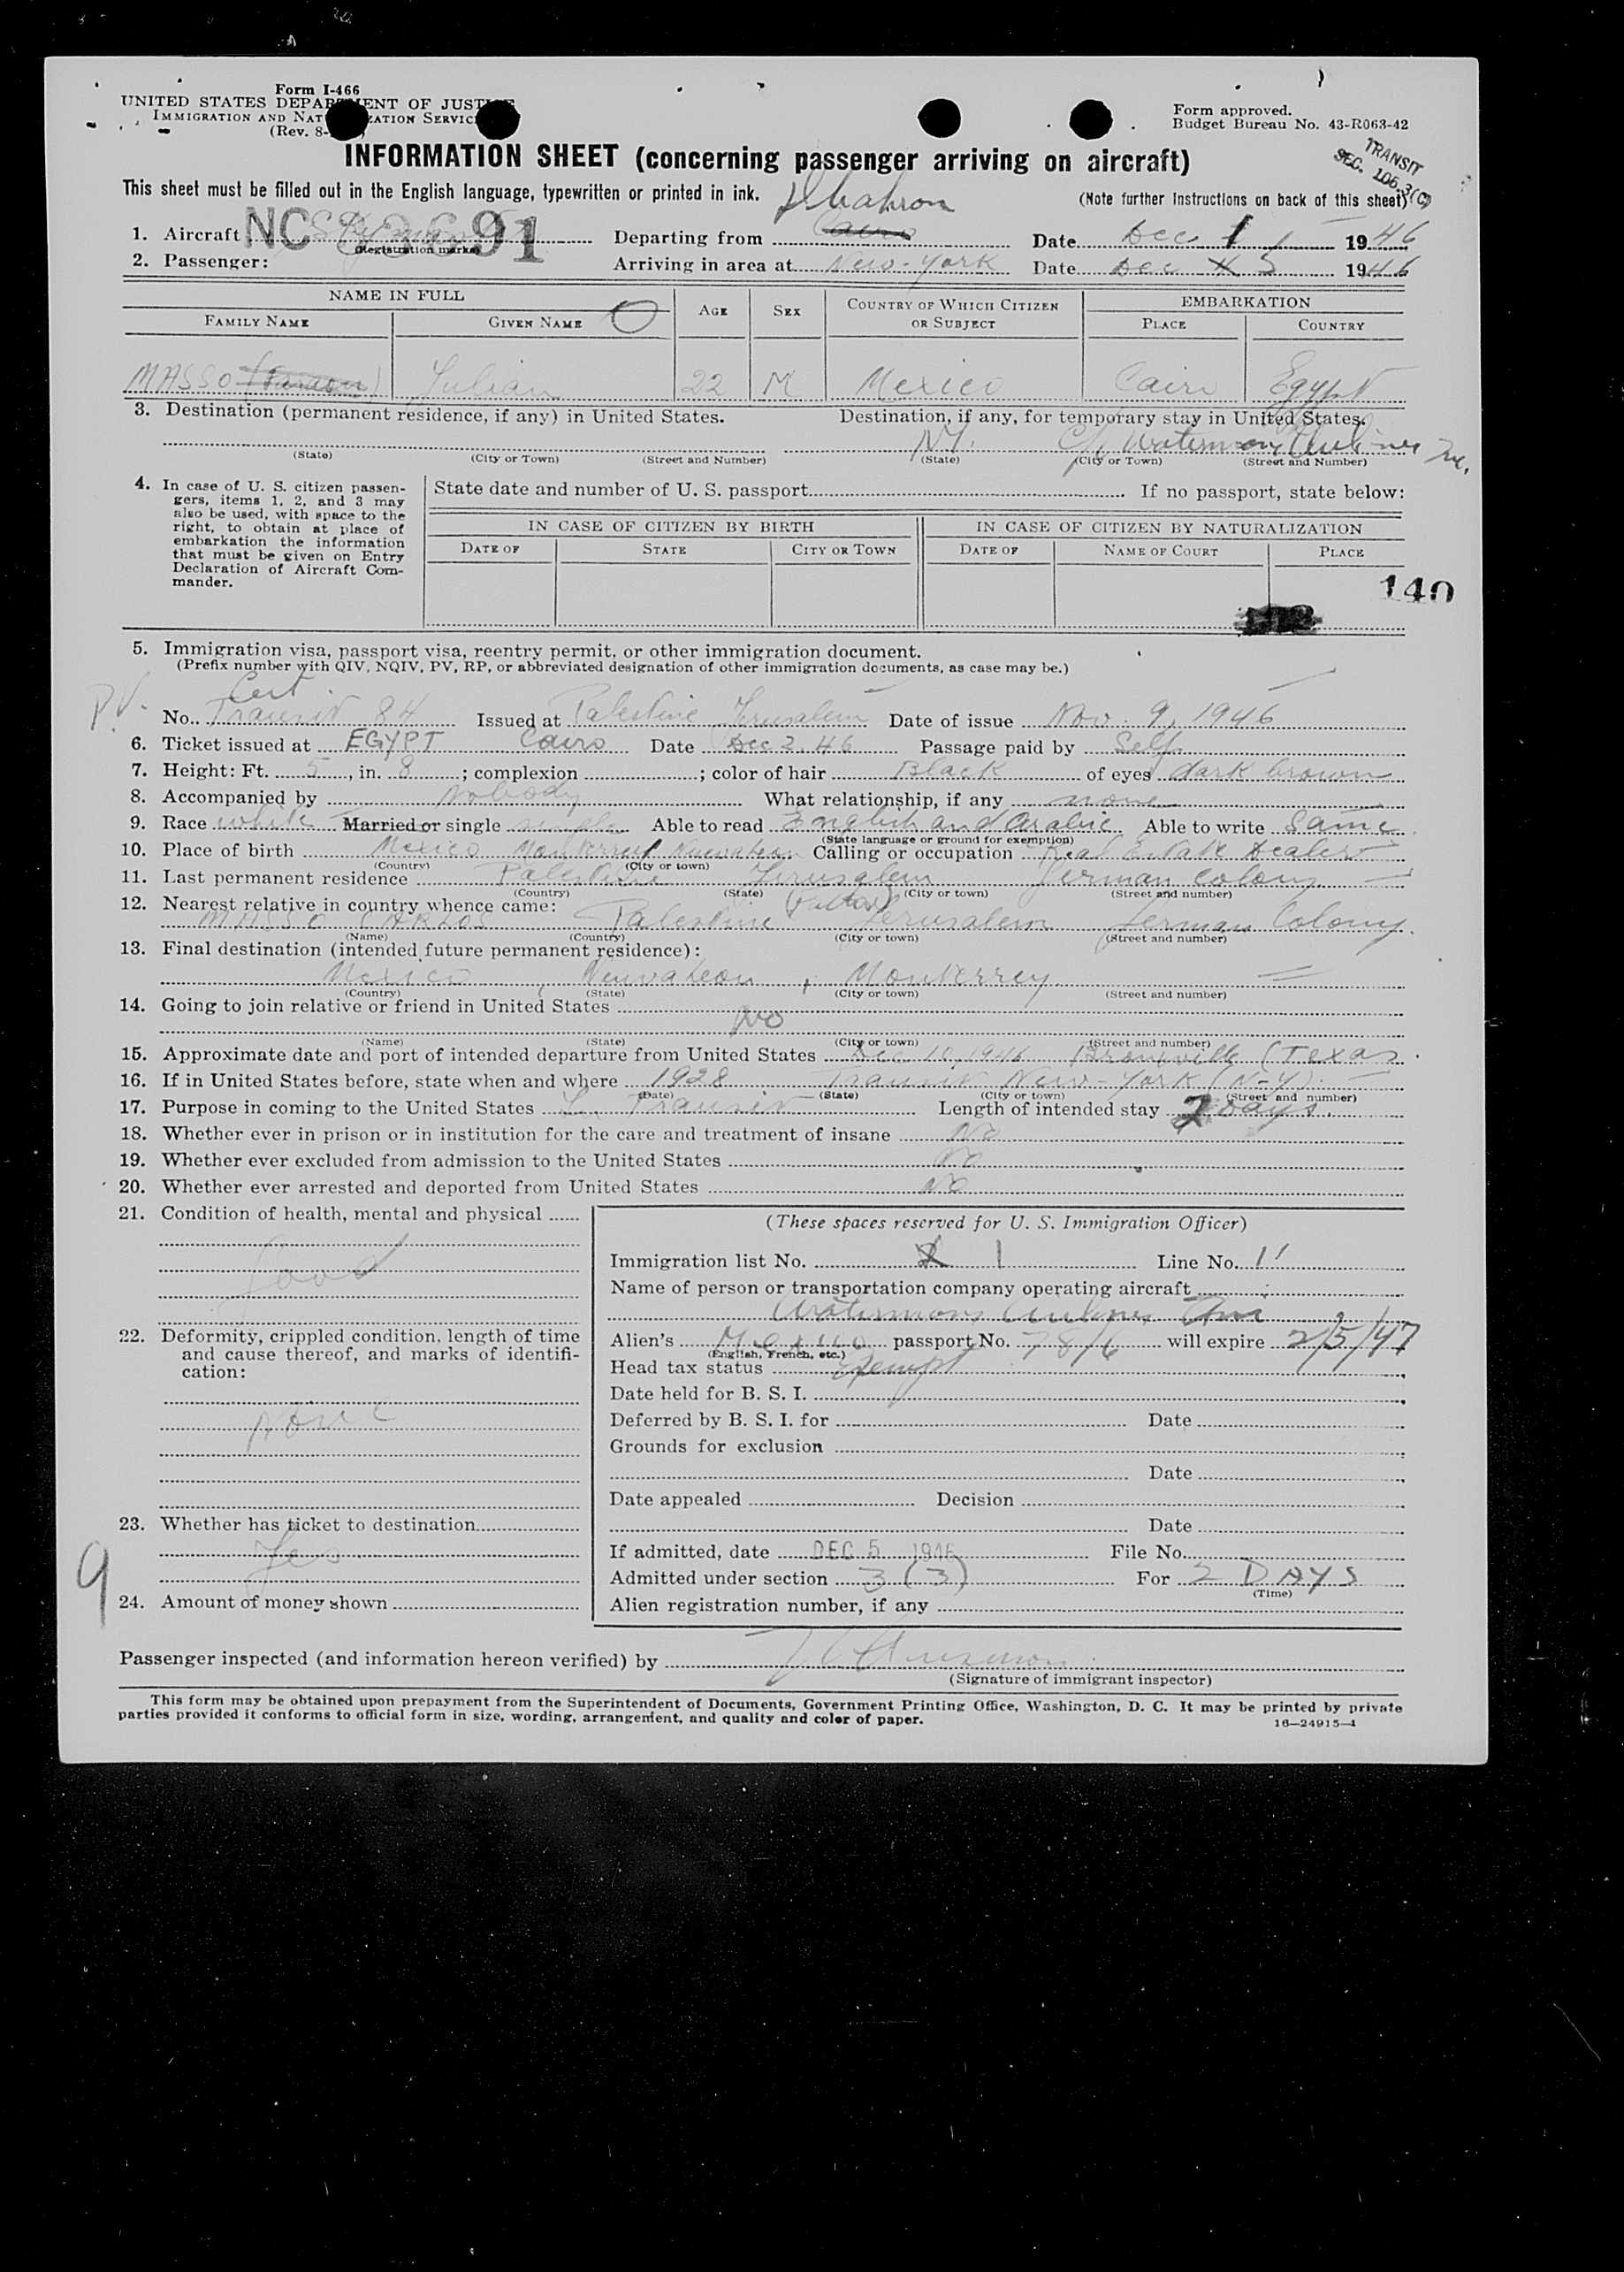 Form I-466
UNITED STATES DEPARTMENT OF JUSTICE
IMMIGRATION AND NATURALIZATION SERVICE
(Rev. 8-
Form approved.
Budget Bureau No. 43-R063-42
INFORMATION SHEET (concerning passenger arriving on aircraft)
TRANSIT
SEC. 106.3(C)
This sheet must be filled out in the English language, typewritten or printed in ink.
(Note further instructions on back of this sheet)
Dhahron
1. Aircraft NC 91 Departing from Cairo Date Dec 1 1946
(Registration marks)
2. Passenger: Arriving in area at New-York Date Dec 5 1946
NAME IN FULL
FAMILY NAME GIVEN NAME AGE SEX COUNTRY OF WHICH CITIZEN OR SUBJECT EMBARKATION
PLACE COUNTRY
MASSO Julian 22 M Mexico Cairo Egypt
3. Destination (permanent residence, if any) in United States. Destination, if any, for temporary stay in United States.
N.Y. C/o Waterman Airlines Inc.
(State) (City or Town) (Street and Number) (State) (City or Town) (Street and Number)
4. In case of U. S. citizen passengers, items 1, 2, and 3 may also be used, with space to the right, to obtain at place of embarkation the information that must be given on Entry Declaration of Aircraft Commander.
State date and number of U. S. passport If no passport, state below:
IN CASE OF CITIZEN BY BIRTH IN CASE OF CITIZEN BY NATURALIZATION
DATE OF STATE CITY OR TOWN DATE OF NAME OF COURT PLACE
140
5. Immigration visa, passport visa, reentry permit, or other immigration document.
(Prefix number with QIV, NQIV, PV, RP, or abbreviated designation of other immigration documents, as case may be.)
P.V. Cert.
No. Transit 84 Issued at Palestine Jerusalem Date of issue Nov. 9, 1946
6. Ticket issued at EGYPT Cairo Date Dec 2. 46 Passage paid by Self
7. Height: Ft. 5, in. 8; complexion ; color of hair Black of eyes dark brown
8. Accompanied by Nobody What relationship, if any none
9. Race white Married or single single Able to read English and Arabic Able to write Same
(State language or ground for exemption)
10. Place of birth Mexico Monterrey Nuevaleon Calling or occupation Real Estate Dealer
(Country) (City or town)
11. Last permanent residence Palestine Jerusalem German Colony
(Country) (State) (City or town) (Street and number)
12. Nearest relative in country whence came: (Father)
MASSO CARLOS Palestine Jerusalem German Colony.
(Name) (Country) (City or town) (Street and number)
13. Final destination (intended future permanent residence):
Mexico, Nuevaleon, Monterrey
(Country) (State) (City or town) (Street and number)
14. Going to join relative or friend in United States
No
(Name) (State) (City or town) (Street and number)
15. Approximate date and port of intended departure from United States Dec 10, 1946 Brownville (Texas
16. If in United States before, state when and where 1928 Transit New-York (N-Y).
(Date) (State) (City or town) (Street and number)
17. Purpose in coming to the United States In Transit Length of intended stay 2 Days
18. Whether ever in prison or in institution for the care and treatment of insane No
19. Whether ever excluded from admission to the United States No
20. Whether ever arrested and deported from United States No
21. Condition of health, mental and physical
Good
22. Deformity, crippled condition, length of time and cause thereof, and marks of identification:
None
23. Whether has ticket to destination
Yes
9
24. Amount of money shown
(These spaces reserved for U. S. Immigration Officer)
Immigration list No. 1 Line No. 11
Name of person or transportation company operating aircraft
Waterman Airlines
Alien's Mexico passport No. 78/6 will expire 2/5/47
(English, French, etc.)
Head tax status Exempt
Date held for B. S. I.
Deferred by B. S. I. for Date
Grounds for exclusion
Date
Date appealed Decision
Date
If admitted, date DEC 5 1946 File No.
Admitted under section 3 (3) For 2 DAYS
(Time)
Alien registration number, if any
Passenger inspected (and information hereon verified) by
(Signature of immigrant inspector)
This form may be obtained upon prepayment from the Superintendent of Documents, Government Printing Office, Washington, D. C. It may be printed by private
parties provided it conforms to official form in size, wording, arrangement, and quality and color of paper.
16—24915-1